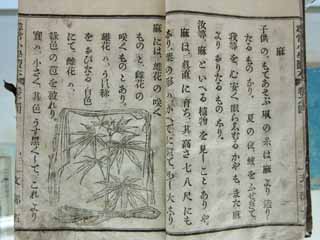 麻
子供の、もてあそぶ凧の糸は、麻より造り
たるものあり、夏の夜、蚊をふせぎて、
我等を、心安く眠らしむるかやも、また麻
より、おりたるものなり、
汝等、麻といへる植物を、見しことありや、
麻は、真直に育ち、其高さ、七八尺にも
麻には、雄花の咲く
ものと、雌花の
咲くものとあり、
雄花ハ、うす緑
をおびたる、白色
にて、雌花ハ、
緑色の苞を被れり、
實ハ、小さく、其色、うす黒くして、これより